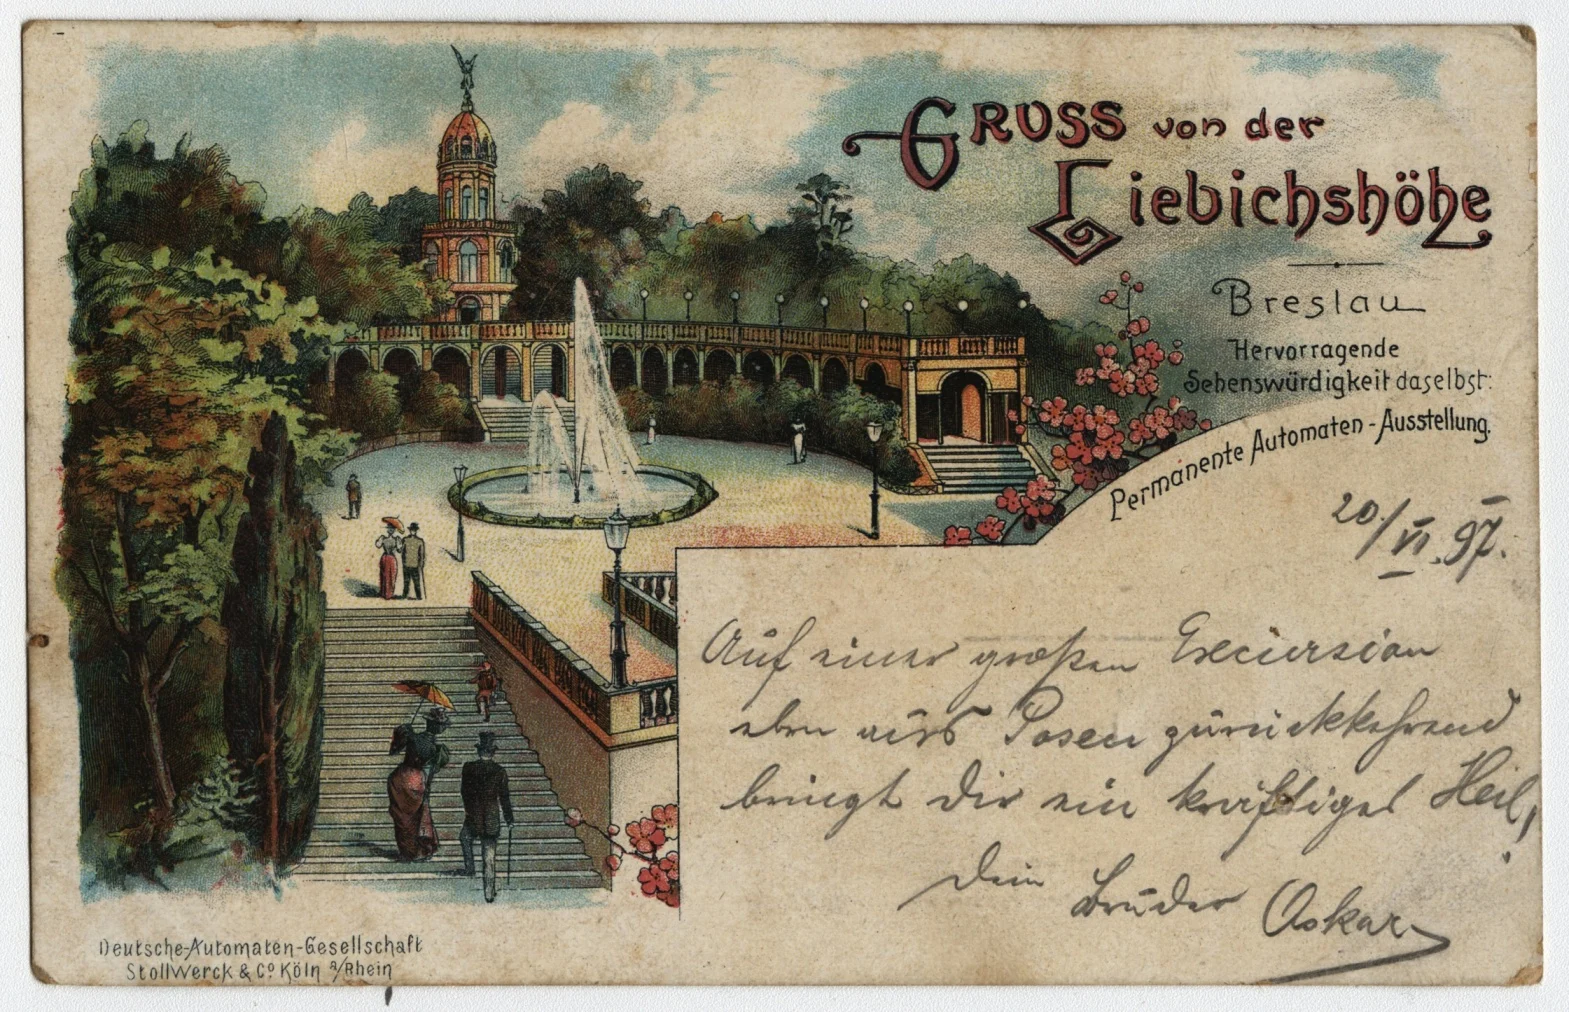 Gruss von der
Liebichshöhe
Breslau
Hervorragende
Sehenswürdigkeit daselbst:
Permanente Automaten-Ausstellung.
20./VI. 97.
Auf einer großen Excursion
eben aus Posen zurückkehrend
bringt Dir ein kräftiges Heil,
Dein Bruder Oskar
Deutsche-Automaten-Gesellschaft
Stollwerck & Co Köln a/Rhein